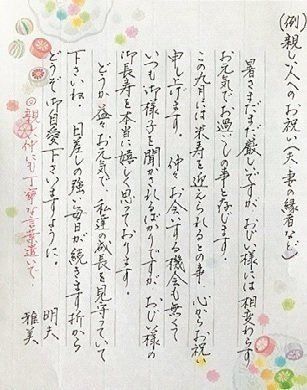 (例)親しい人へのお祝い(夫、妻の縁者など)
暑さまだまだ厳しですが、おじい様には相変わらず
お元気でお過ごしの事と存じます。
この九月には米寿を迎えられるとの事 心からお祝い
申し上げます。 仲々お会いする機会も無くて
いつも御様子を聞かされるばかりですが、おじい様の
御長寿を本当に嬉しく思っております。
どうか益々お元気で、私達の成長を見守っていて
下さいね。 日差しの強い毎日が続きます折から
どうぞ御自愛下さいますように。
明夫
雅美
◎親しい仲にも丁寧な言葉遣いで